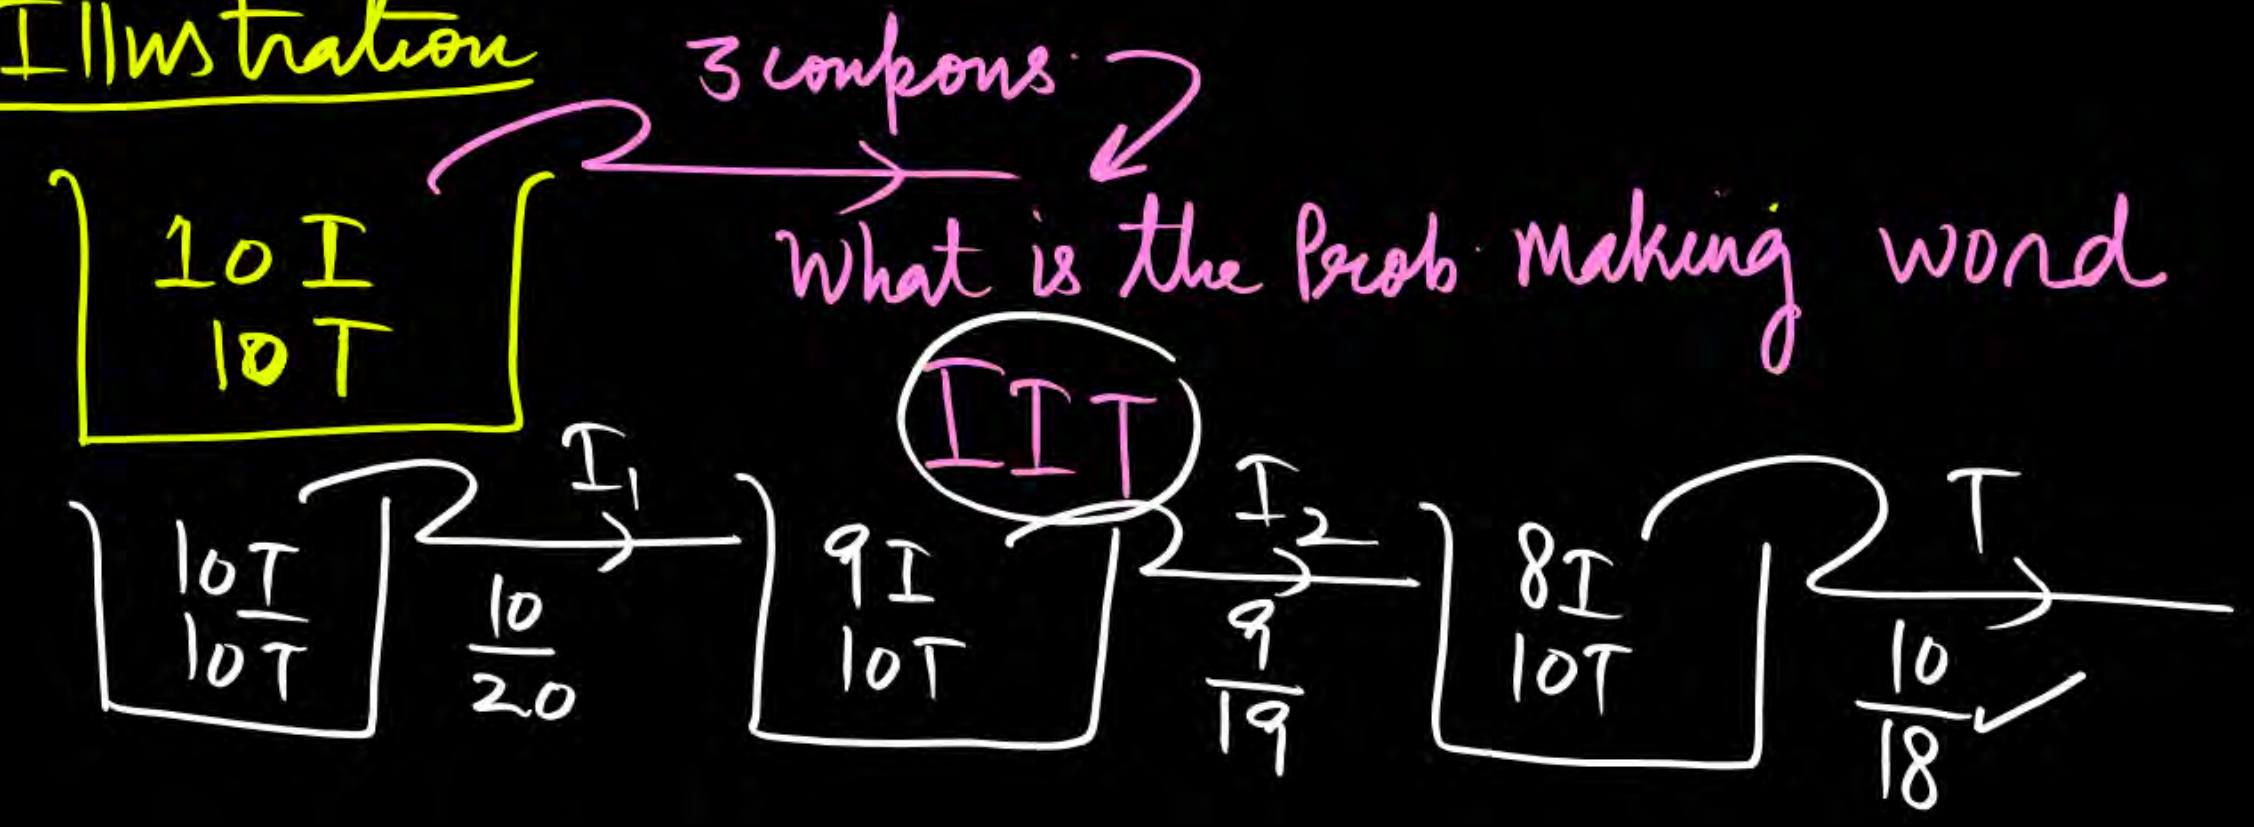 Illustration
3 coupons
10 I
10 T
What is the Prob. Making word
IIT
10I
10T
I1
10/20
9I
10T
I2
9/19
8I
10T
T
10/18 ✓